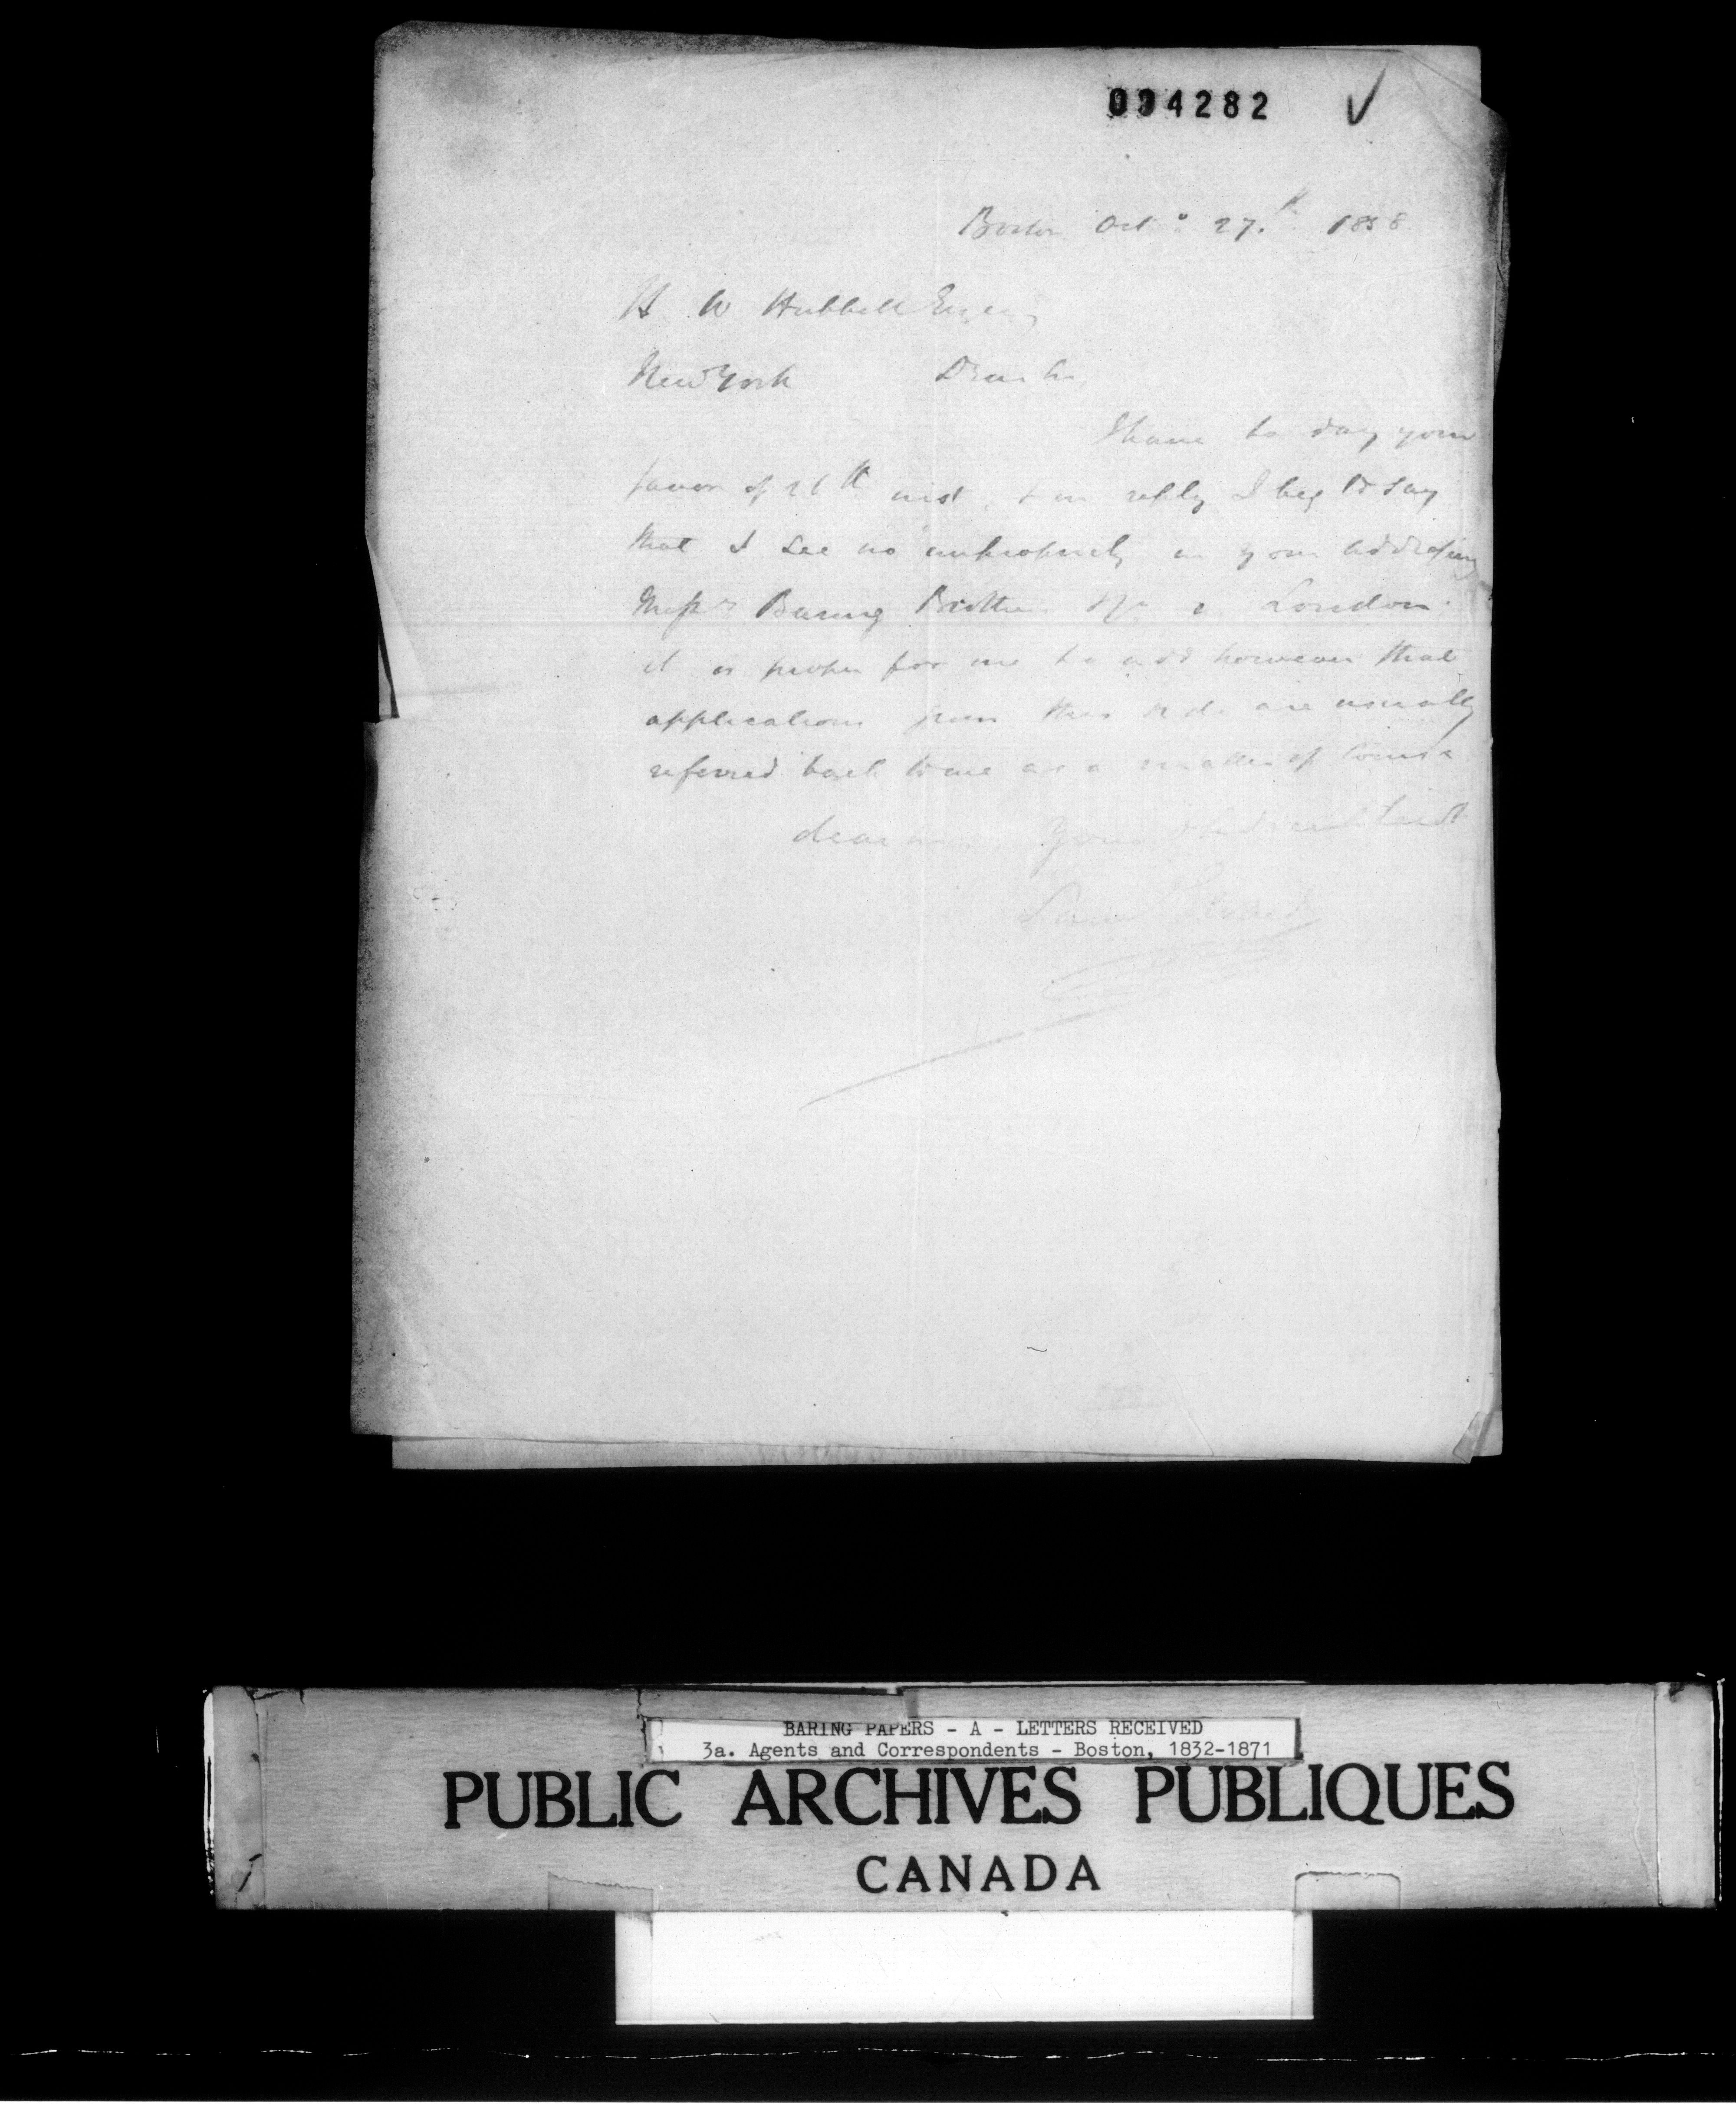 034282
Boston Octo 27.th 1858
H W Hubbell Esq
New York Dear Sir,
I have to day your
favor of 26th inst, & in reply I beg to say
that I see no impropriety in your addressing
Messrs Baring Brothers &Co in London.
it is proper for me to add however that
applications from this side are usually
referred back to me as a matter of course
dear Sir Your
BARING PAPERS - A - LETTERS RECEIVED
3a. Agents and Correspondents - Boston, 1832-1871
PUBLIC ARCHIVES PUBLIQUES
CANADA